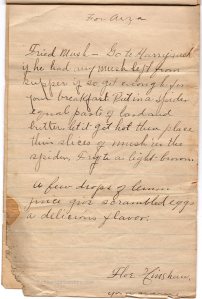 For Arza
Fried Mush - Go to Harry ask
if he had any mush left from
supper if so get enough for
your breakfast. Put in a spider
equal parts of lard and
butter let it get hot then place
thin slices of mush in the
spider, & fry to a light brown.
A few drops of lemon
juice give scrambled eggs
a delicious flavor.
Flor Hinshaw